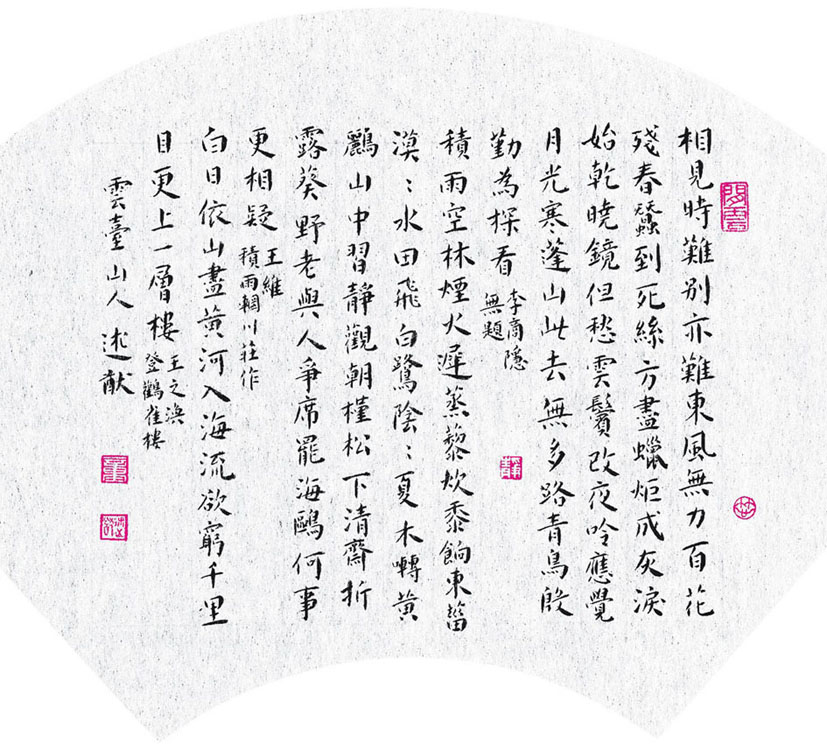 相見時難别亦難東風無力百花
殘春蠶到死絲方盡蠟炬成灰淚
始乾曉鏡但愁雲鬢改夜吟應覺
月光寒蓬山此去無多路青鳥殷
勤為探看
李商隱
無題
積雨空林煙火遲蒸藜炊黍餉東菑
漠〻水田飛白鷺陰〻夏木囀黄
鸝山中習靜觀朝槿松下清齋折
露葵野老與人爭席罷海鷗何事
更相疑
王維
積雨輞川莊作
白日依山盡黄河入海流欲窮千里
目更上一層樓
王之渙
登鸛雀樓
雲臺山人述猷
静